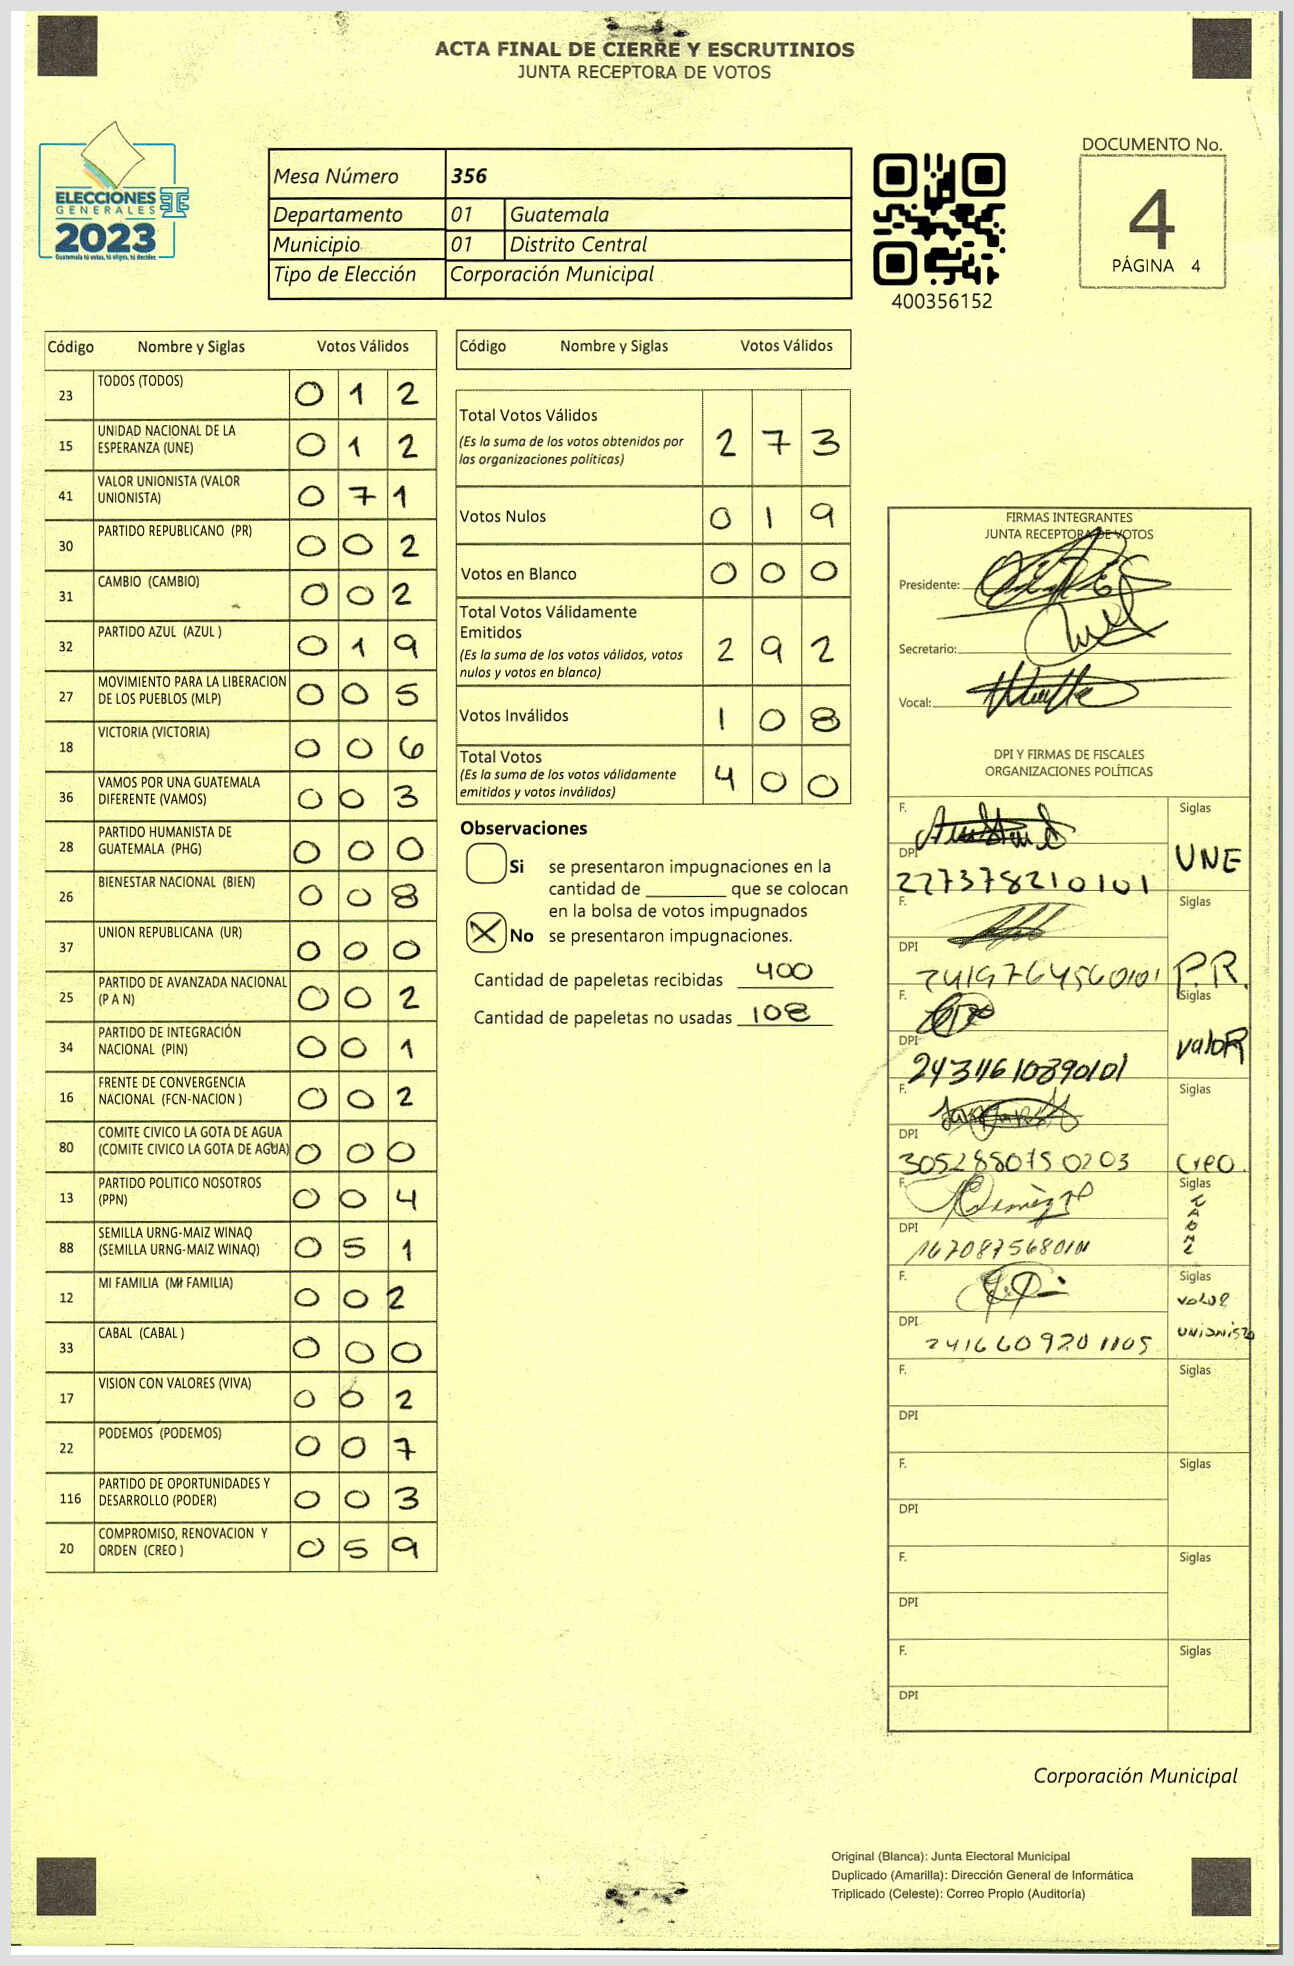 ACTA FINAL DE CIERRE Y ESCRUTINIOS
JUNTA RECEPTORA DE VOTOS
ELECCIONES
GENERALES
2023
Guatemala tú votas, tú eliges, tú decides
Mesa Número 356
Departamento 01 Guatemala
Municipio 01 Distrito Central
Tipo de Elección Corporación Municipal
400356152
DOCUMENTO No.
4
PÁGINA 4
Código Nombre y Siglas Votos Válidos
23 TODOS (TODOS) 0 1 2
15 UNIDAD NACIONAL DE LA
ESPERANZA (UNE) 0 1 2
41 VALOR UNIONISTA (VALOR
UNIONISTA) 0 7 1
30 PARTIDO REPUBLICANO (PR) 0 0 2
31 CAMBIO (CAMBIO) 0 0 2
32 PARTIDO AZUL (AZUL ) 0 1 9
27 MOVIMIENTO PARA LA LIBERACION
DE LOS PUEBLOS (MLP) 0 0 5
18 VICTORIA (VICTORIA) 0 0 6
36 VAMOS POR UNA GUATEMALA
DIFERENTE (VAMOS) 0 0 3
28 PARTIDO HUMANISTA DE
GUATEMALA (PHG) 0 0 0
26 BIENESTAR NACIONAL (BIEN) 0 0 8
37 UNION REPUBLICANA (UR) 0 0 0
25 PARTIDO DE AVANZADA NACIONAL
(P A N) 0 0 2
34 PARTIDO DE INTEGRACIÓN
NACIONAL (PIN) 0 0 1
16 FRENTE DE CONVERGENCIA
NACIONAL (FCN-NACION ) 0 0 2
80 COMITE CIVICO LA GOTA DE AGUA
(COMITE CIVICO LA GOTA DE AGUA) 0 0 0
13 PARTIDO POLITICO NOSOTROS
(PPN) 0 0 4
88 SEMILLA URNG-MAIZ WINAQ
(SEMILLA URNG-MAIZ WINAQ) 0 5 1
12 MI FAMILIA (MI FAMILIA) 0 0 2
33 CABAL (CABAL ) 0 0 0
17 VISION CON VALORES (VIVA) 0 0 2
22 PODEMOS (PODEMOS) 0 0 7
116 PARTIDO DE OPORTUNIDADES Y
DESARROLLO (PODER) 0 0 3
20 COMPROMISO, RENOVACION Y
ORDEN (CREO ) 0 5 9
Código Nombre y Siglas Votos Válidos
Total Votos Válidos 2 7 3
(Es la suma de los votos obtenidos por
las organizaciones políticas)
Votos Nulos 0 1 9
Votos en Blanco 0 0 0
Total Votos Válidamente
Emitidos 2 9 2
(Es la suma de los votos válidos, votos
nulos y votos en blanco)
Votos Inválidos 1 0 8
Total Votos 4 0 0
(Es la suma de los votos válidamente
emitidos y votos inválidos)
Observaciones
Si se presentaron impugnaciones en la
cantidad de ________ que se colocan
en la bolsa de votos impugnados
X No se presentaron impugnaciones.
Cantidad de papeletas recibidas 400
Cantidad de papeletas no usadas 108
FIRMAS INTEGRANTES
JUNTA RECEPTORA DE VOTOS
Presidente:
Secretario:
Vocal:
DPI Y FIRMAS DE FISCALES
ORGANIZACIONES POLÍTICAS
F. Siglas
DPI UNE
227378210101
F. Siglas
DPI P.R.
2419764560101
F. Siglas
DPI valoR
F. Siglas
DPI
3052880750203 Creo.
F. Siglas
DPI
F. Siglas
valor
DPI unionista
2416609201105
F. Siglas
DPI
F. Siglas
DPI
F. Siglas
DPI
F. Siglas
DPI
Corporación Municipal
Original (Blanca): Junta Electoral Municipal
Duplicado (Amarilla): Dirección General de Informática
Triplicado (Celeste): Correo Proplo (Auditoría)